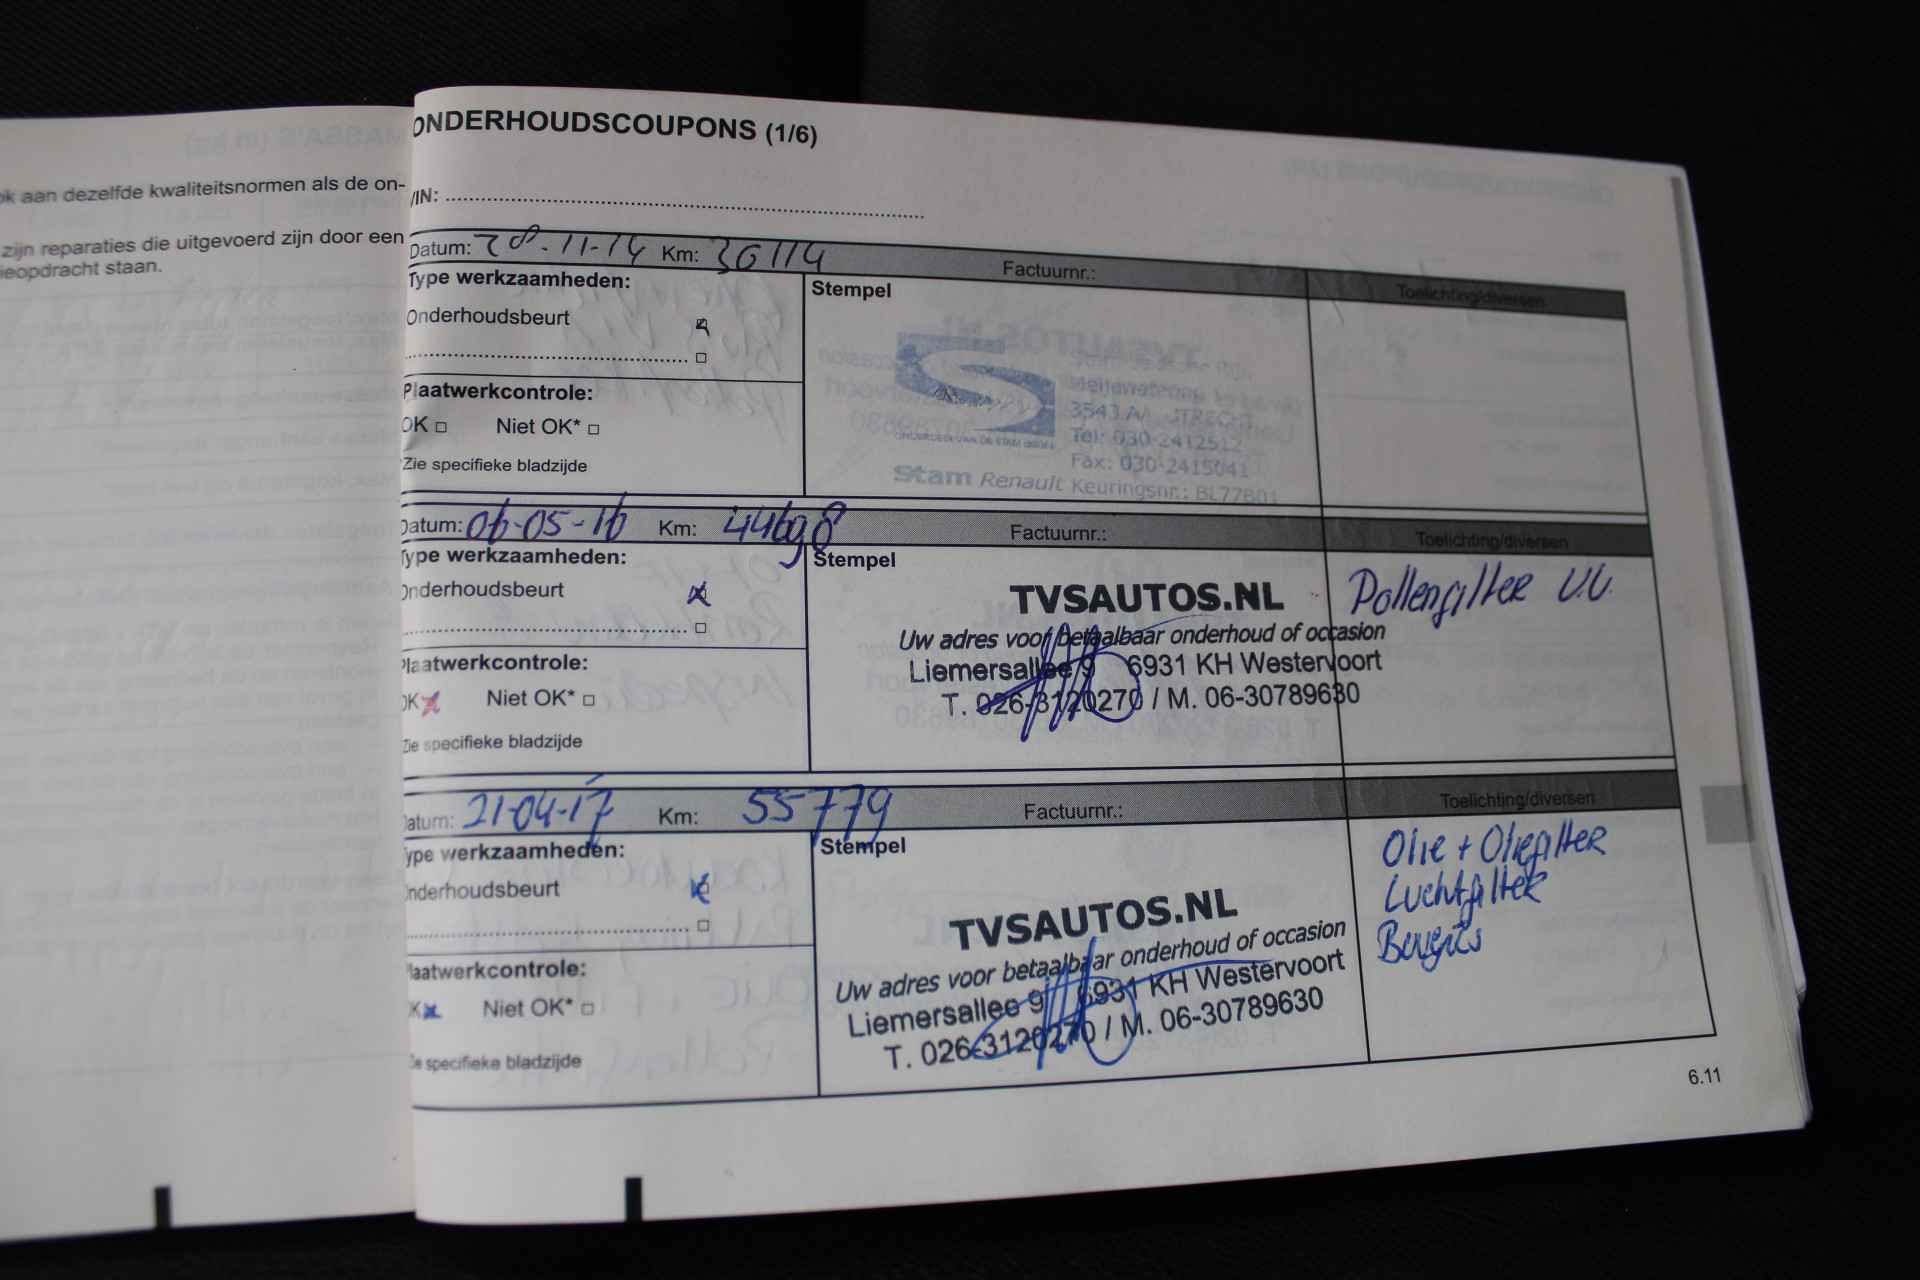 ok aan dezelfde kwaliteitsnormen als de on-
zijn reparaties die uitgevoerd zijn door een
ieopdracht staan.
ONDERHOUDSCOUPONS (1/6)
VIN:
Datum: 28-11-14 Km: 36114 Factuurnr.: Toelichting/diversen
Type werkzaamheden:
Stempel
Onderhoudsbeurt
Plaatwerkcontrole:
OK Niet OK*
*Zie specifieke bladzijde
3543 AA UTRECHT
Tel: 030-2412512
Fax: 030-2415041
Stam Renault Keuringsnr.: BL77B01
Datum: 06-05-16 Km: 44698 Factuurnr.: Toelichting/diversen
Type werkzaamheden:
Stempel
Onderhoudsbeurt
Plaatwerkcontrole:
OK Niet OK*
Zie specifieke bladzijde
TVSAUTOS.NL
Uw adres voor betaalbaar onderhoud of occasion
Liemersallee 9 6931 KH Westervoort
T. 026-3120270 / M. 06-30789630
Pollenfilter V.V.
Datum: 21-04-17 Km: 55779 Factuurnr.: Toelichting/diversen
Type werkzaamheden:
Stempel
Onderhoudsbeurt
Plaatwerkcontrole:
OK Niet OK*
Zie specifieke bladzijde
TVSAUTOS.NL
Uw adres voor betaalbaar onderhoud of occasion
Liemersallee 9 6931 KH Westervoort
T. 026-3120270 / M. 06-30789630
Olie + Oliefilter
Luchtfilter
Bougies
6.11